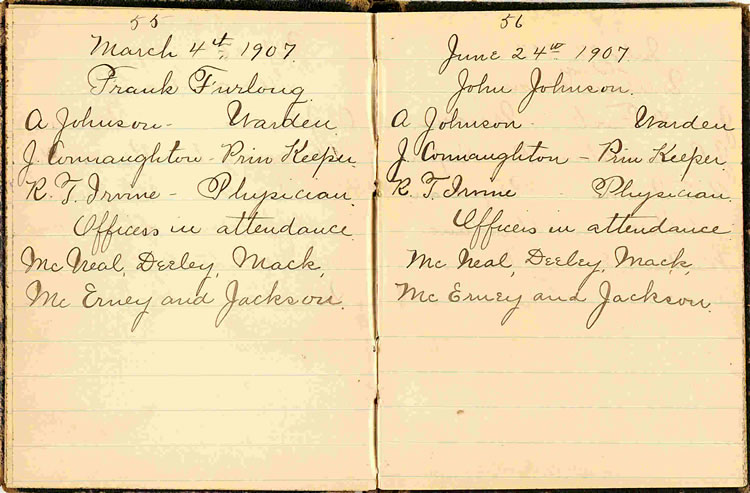 55
March 4th 1907
Frank Furlong
A Johnson - Warden
J. Connaughton - Prin Keeper.
R. T. Irvine - Physician.
Officers in attendance
Mc Neal, Deeley, Mack,
Mc Erney and Jackson.
56
June 24th 1907
John Johnson.
A Johnson - Warden
J. Connaughton - Prin Keeper.
R. T. Irvine - Physician.
Officers in attendance
Mc Neal, Deeley, Mack,
Mc Erney and Jackson.